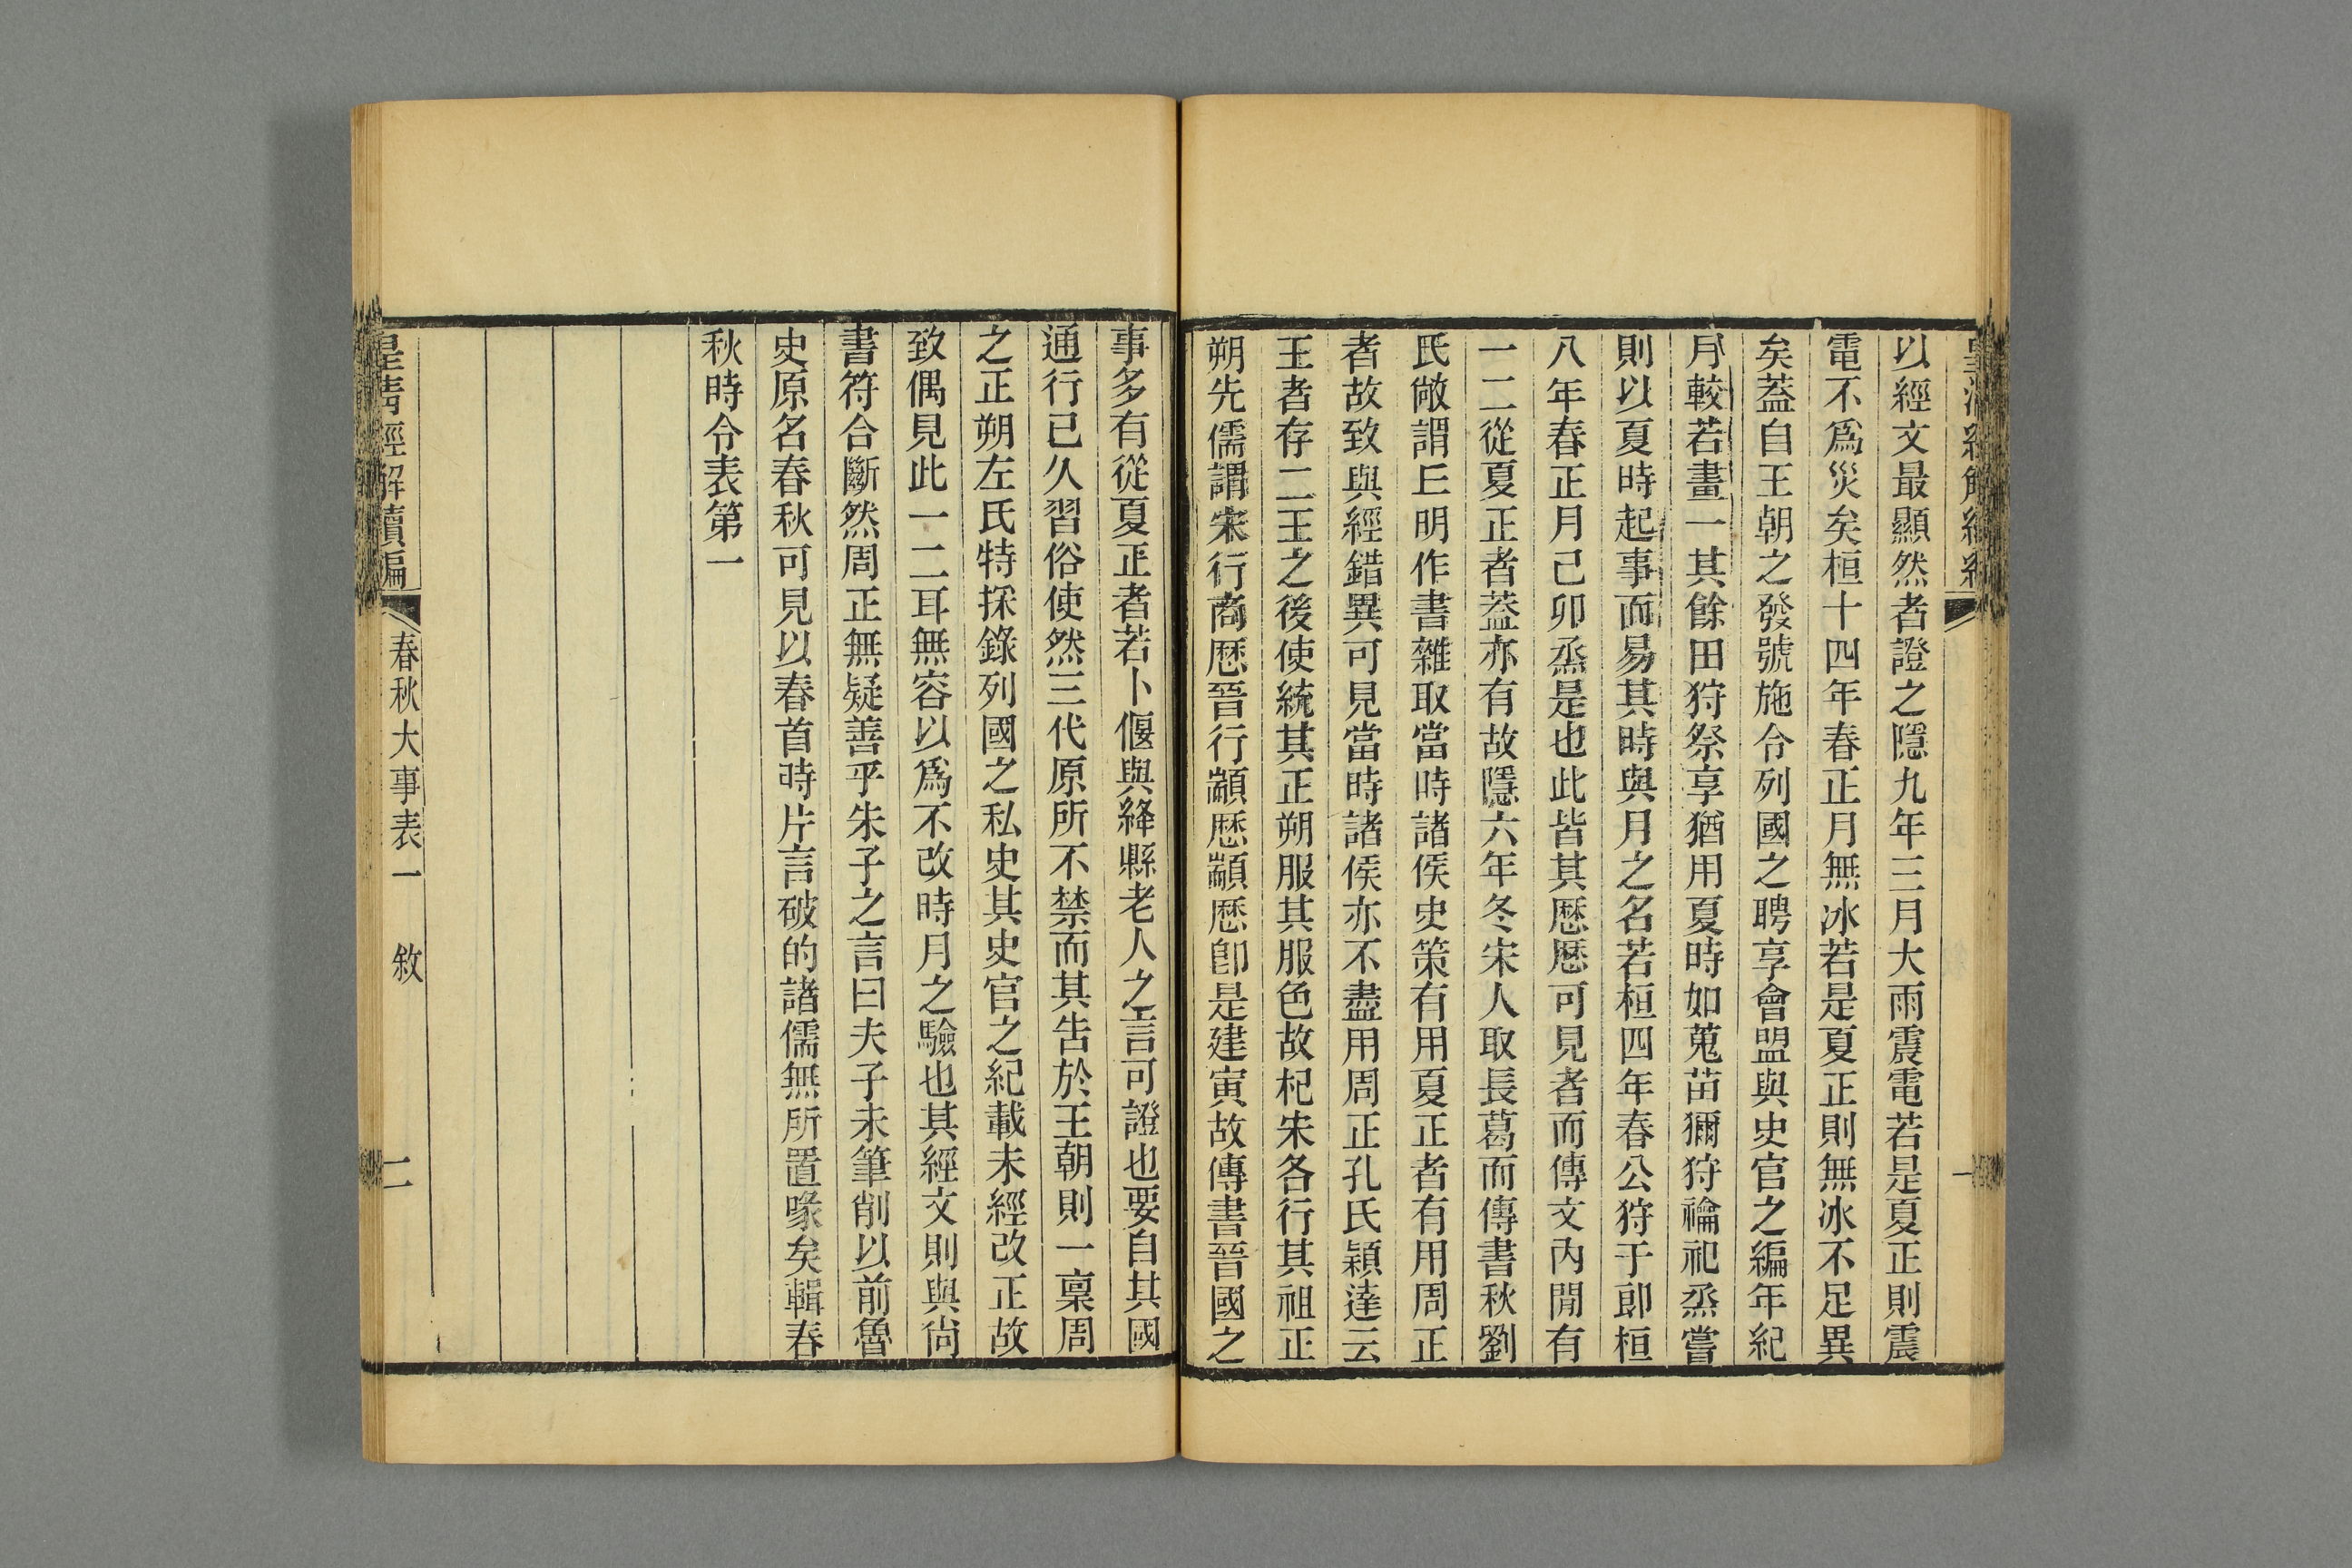 以經文最顯然者證之隱九年三月大雨震電若是夏正則震
電不爲災矣桓十四年春正月無冰若是夏正則無冰不足異
矣蓋自王朝之發號施令列國之聘享會盟與史官之編年紀
月較若畫一其餘田狩祭享猶用夏時如蒐苗獮狩禴祀烝嘗
則以夏時起事而易其時與月之名若桓四年春公狩于郎桓
八年春正月己卯烝是也此皆其歷歷可見者而傳文內閒有
一二從夏正者蓋亦有故隱六年冬宋人取長葛而傳書秋劉
氏敞謂丘明作書雜取當時諸侯史策有用夏正者有用周正
者故致與經錯異可見當時諸侯亦不盡用周正孔氏穎達云
王者存二王之後使統其正朔服其服色故杞宋各行其祖正
朔先儒謂宋行商歷晉行顓歷顓歷卽是建寅故傳書晉國之
事多有從夏正者若卜偃與絳縣老人之言可證也要自其國
通行已久習俗使然三代原所不禁而其吿於王朝則一稟周
之正朔左氏特採錄列國之私史其史官之紀載未經改正故
致偶見此一二耳無容以爲不改時月之驗也其經文則與尙
書符合斷然周正無疑善乎朱子之言曰夫子未筆削以前魯
史原名春秋可見以春首時片言破的諸儒無所置喙矣輯春
秋時令表第一
皇淸經解續編 春秋大事表一 敘 二